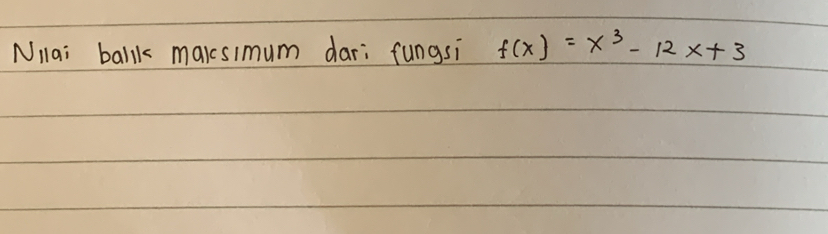 Nilai balik maksimum dari fungsi f(x) = x³ - 12x + 3